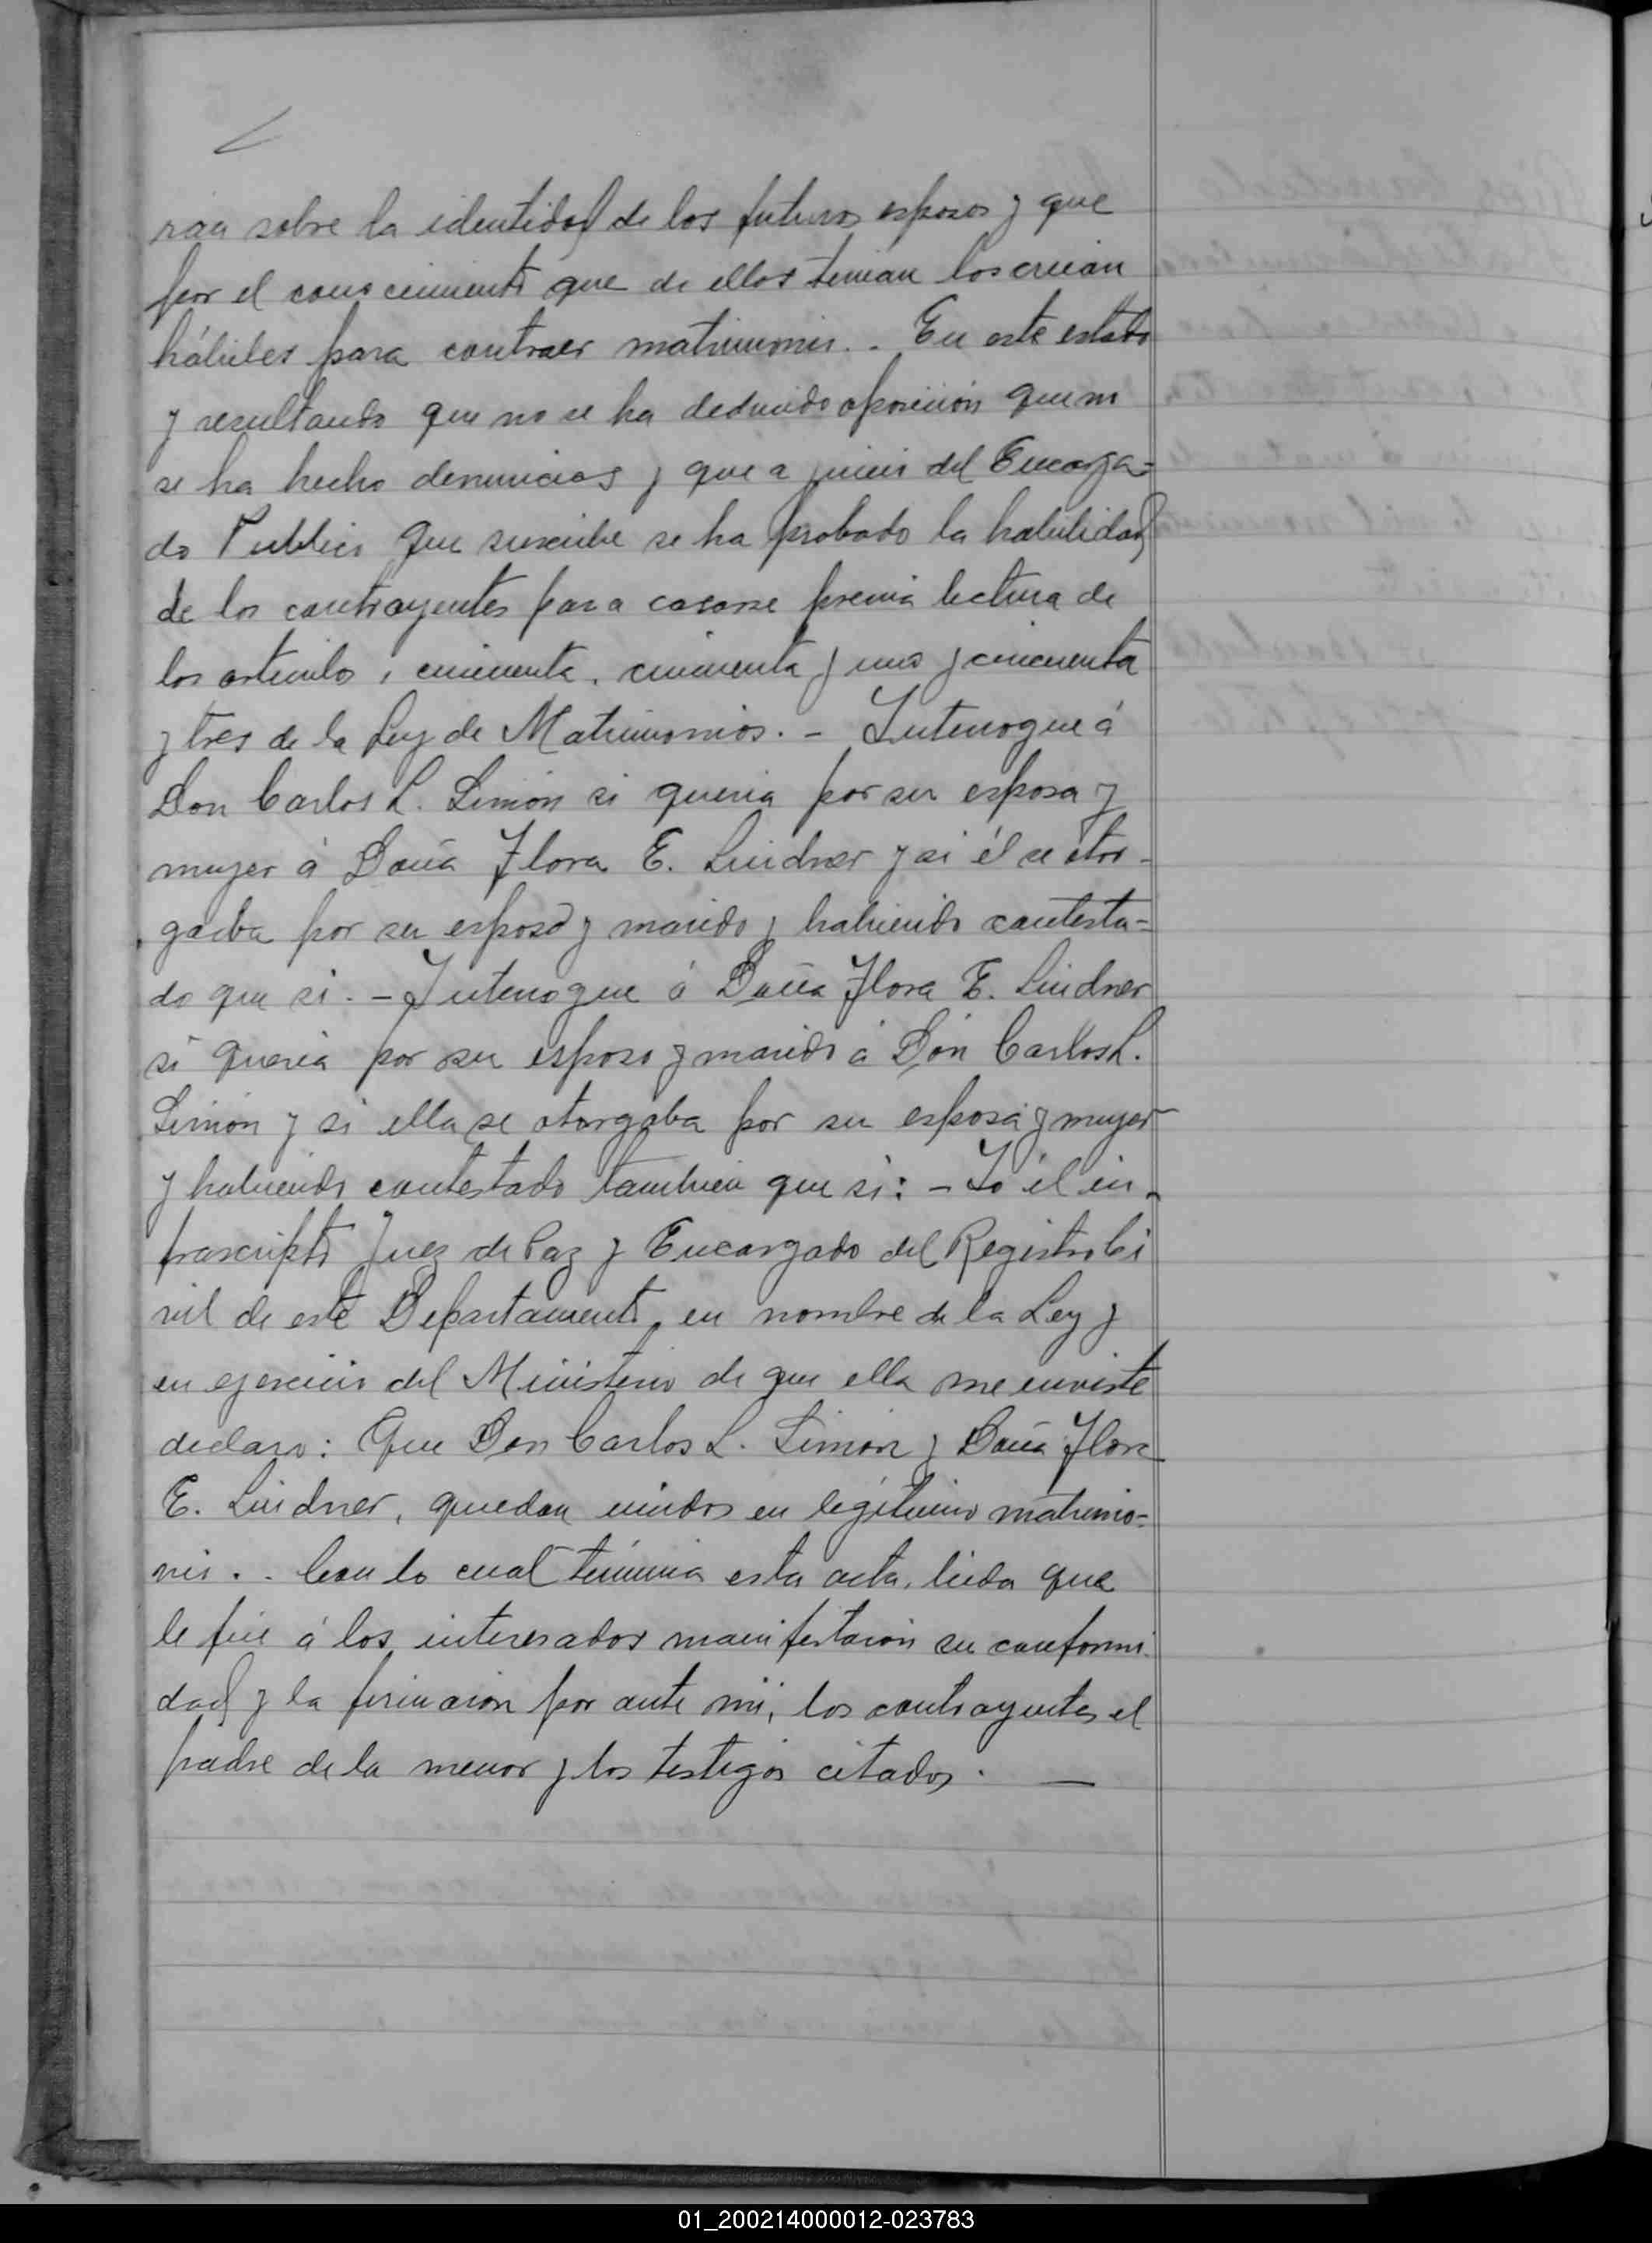 ran sobre la identidad de los futuros esposos y que
por el conocimiento que de ellos tenian los creian
hábiles para contraer matrimonio. - En este estado
y resultando que no se ha deducido oposición que ni
se ha hecho denuncias y que a juicio del Encarga=
do Publico que suscribe se ha probado la habilidad
de los contrayentes para casarse previa lectura de
los articulos, cincuenta, cincuenta y uno y cincuenta
y tres de la Ley de Matrimonios. - Interrogue á
Don Carlos L. Simón si queria por su esposa y
mujer á Doña Flora E. Lindner y si él se otor-
gaba por su esposo y marido y habiendo contesta=
do que si. - Interrogue á Doña Flora E. Lindner
si queria por su esposo y marido á Don Carlos L.
Simón y si ella se otorgaba por su esposa y mujer
y habiendo contestado tambien que si: - Yo él in-
frascripto Juez de Paz y Encargado del Registro Ci
vil de este Departamento, en nombre de la Ley y
en ejercicio del Ministerio de que ella me enviste
declaro: Que Don Carlos L. Simón y Doña Flora
E. Lindner, quedan unidos en legítimo matrimo=
nio. - Con lo cual términa esta acta, leida que
le fué á los interesados manifestaron su conformi
dad y la firmaron por ante mi, los contrayentes el
padre de la menor y los testigos citados. —
01_200214000012-023783